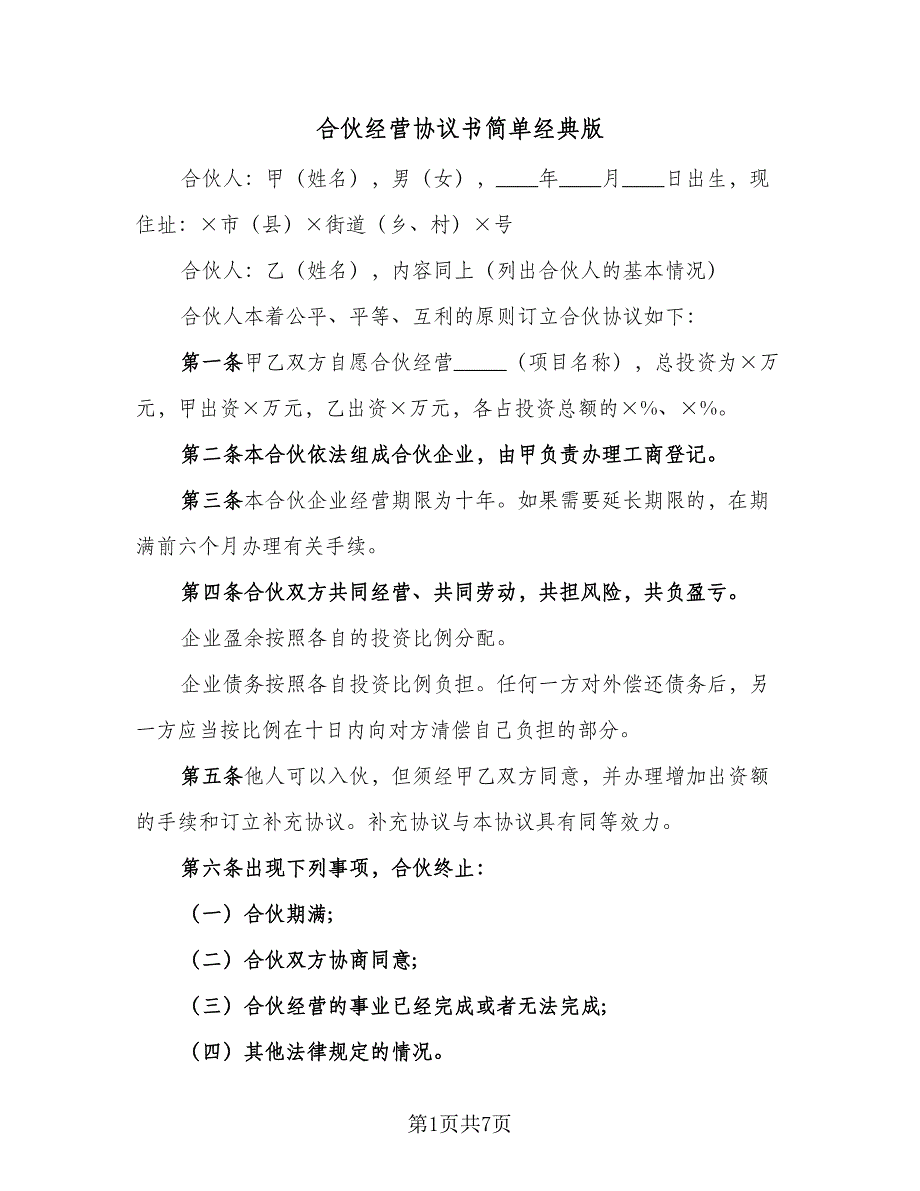 合伙经营协议书简单经典版
合伙人：甲（姓名），男（女），____年____月____日出生，现
住址：×市（县）×街道（乡、村）×号
合伙人：乙（姓名），内容同上（列出合伙人的基本情况）
合伙人本着公平、平等、互利的原则订立合伙协议如下：
第一条甲乙双方自愿合伙经营_____（项目名称），总投资为×万
元，甲出资×万元，乙出资×万元，各占投资总额的×%、×%。
第二条本合伙依法组成合伙企业，由甲负责办理工商登记。
第三条本合伙企业经营期限为十年。如果需要延长期限的，在期
满前六个月办理有关手续。
第四条合伙双方共同经营、共同劳动，共担风险，共负盈亏。
企业盈余按照各自的投资比例分配。
企业债务按照各自投资比例负担。任何一方对外偿还债务后，另
一方应当按比例在十日内向对方清偿自己负担的部分。
第五条他人可以入伙，但须经甲乙双方同意，并办理增加出资额
的手续和订立补充协议。补充协议与本协议具有同等效力。
第六条出现下列事项，合伙终止：
（一）合伙期满;
（二）合伙双方协商同意;
（三）合伙经营的事业已经完成或者无法完成;
（四）其他法律规定的情况。
第1页共7页